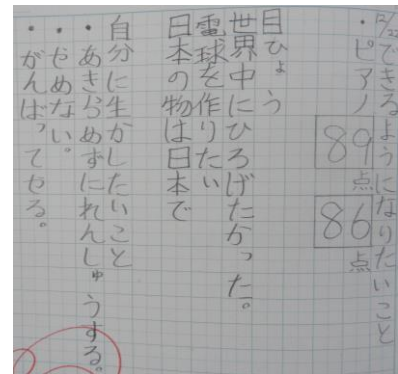 12/22
できるようになりたいこと
・ピアノ
89点
86点
目ひょう
世界中にひろげたかった。
電球を作りたい
日本の物は日本で
自分に生かしたいこと
・あきらめずにれんしゅうする。
・やめない。
・がんばってやる。